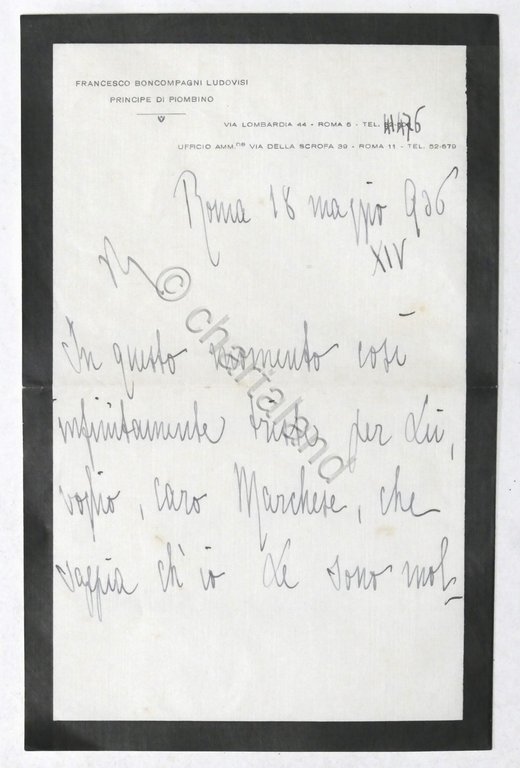 FRANCESCO BONCOMPAGNI LUDOVISI
PRINCIPE DI PIOMBINO
VIA LOMBARDIA 44 - ROMA 5 - TEL.
UFFICIO AMM.NE VIA DELLA SCROFA 39 - ROMA 11 - TEL. 52-679
Roma 18 maggio 936
XIV
© chartaland
In questo momento così
infinitamente triste per Lei,
voglio, caro Marchese, che
sappia ch'io Le sono mol-